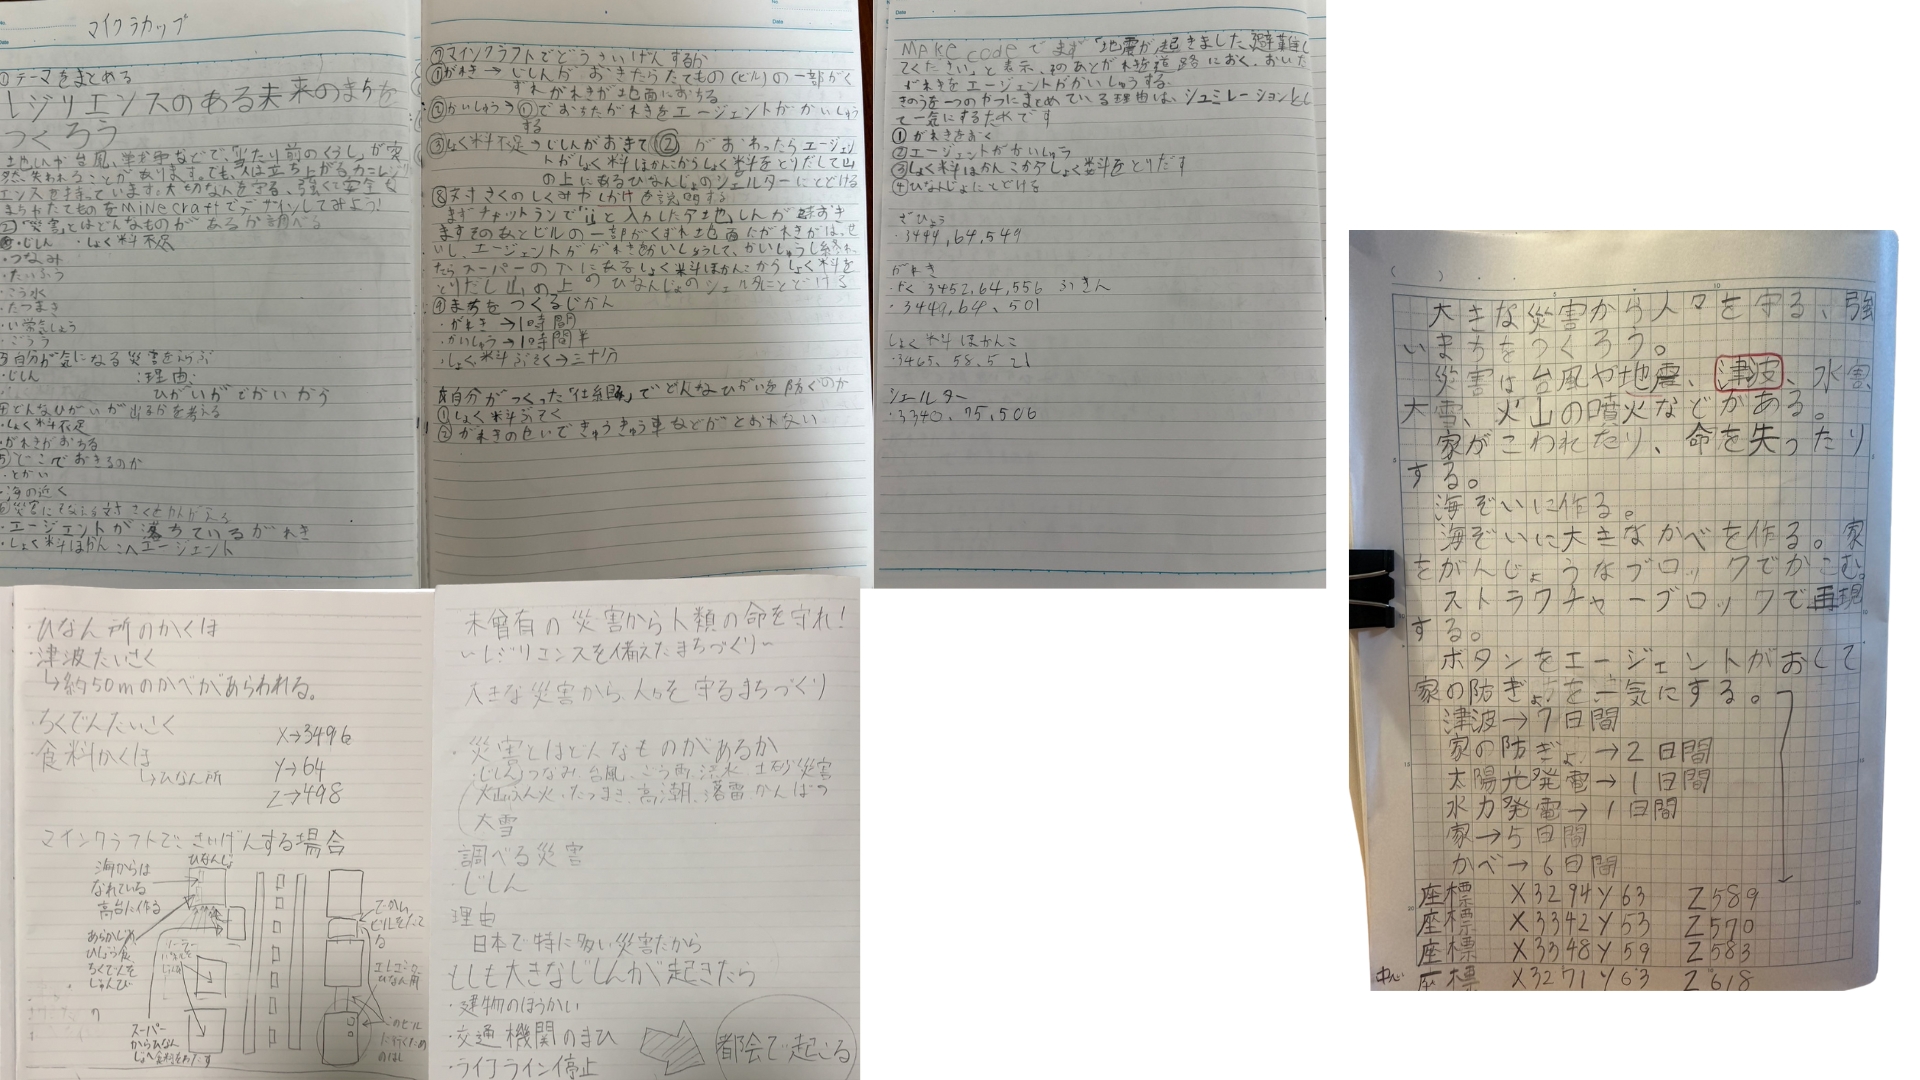 マイクラカップ
①テーマをまとめる
レジリエンスのある未来のまちを
つくろう
まちやたてものをMinecraftでデザインしてみよう!
②災害とはどんなものがあるか調べる
・じしん ・しょく料不足
・つなみ
・たいふう
・こう水
・たつまき
・い常気しょう
・ごうう
③自分が気になる災害をえらぶ
・じしん :理由:
ひがいがでかいから
④どんなひがいが出るかを考える
・しょく料不足
・がれきがおちる
⑤どこでおきるのか
・とかい
・海の近く
⑥災害にそなえる対さくをかんがえる
・エージェントが落ちているがれき
・しょく料ほかんこへエージェント
⑦マインクラフトでどうさいげんするか
①がれき→じしんがおきたらたてもの(ビル)の一部がく
ずれがれきが地面におちる
②かいしゅう→①でおちたがれきをエージェントがかいしゅう
する
③しょく料不足→じしんがおきて②がおわったらエージェン
トがしょく料ほかんこからしょく料をとりだして山
の上にあるひなんじょのシェルターにとどける
⑧対さくのしくみやしかけを説明する
まずチャットランで"jj"と入力したら地しんが起き
ますそのあとビルの一部がくずれ地面にがれきがはっせ
いし、エージェントががれきをかいしゅうして、かいしゅうし終わっ
たらスーパーの下にあるしょく料ほかんこからしょく料を
とりだし山の上のひなんじょのシェルターにとどける
⑨まちをつくるじかん
・がれき→1時間
・かいしゅう→1時間半
・しょく料ぶそく→三十分
自分がつくった「仕組み」でどんなひがいを防ぐのか
①しょく料ぶそく
②がれきのせいできゅうきゅう車などがとおれない
MAKE codeでまず「地震が起きました避難し
てください」と表示、そのあとがれきを道路におく、おいた
がれきをエージェントがかいしゅうする。
きのうを一つのやつにまとめている理由は、シュミレーションとし
て一気にするためです
①がれきをおく
②エージェントがかいしゅう
③しょく料ほかんこからしょく料をとりだす
④ひなんじょにとどける
ざひょう
・3444,64,549
がれき
・ぼく 3452,64,556 ふきん
・3449,64,501
しょく料ほかんこ
・3465,58,521
シェルター
・3340,75,506
・ひなん所のかくほ
・津波たいさく
↳約50mのかべがあらわれる。
・ちくでんたいさく
・食料かくほ
↳ひなん所
X→3496
Y→64
Z→498
マインクラフトでさいげんする場合
ひなんじょ
海からは
なれている
高台に作る
あらかじめ
ひじょう食、
ちくでんを
じゅんび
スーパー
からひなん
じょへ食料をわたす
でかい
ビルをたて
る
このビル
に行くため
のはし
未曾有の災害から人類の命を守れ!
〜レジリエンスを備えたまちづくり〜
大きな災害から、人々を守るまちづくり
・災害とはどんなものがあるか
・じしん、つなみ、台風、ごう雨、洪水、土砂災害
火山ふん火・たつまき、高潮、落雷、かんばつ
大雪
調べる災害
・じしん
理由
日本で特に多い災害だから
もしも大きなじしんが起きたら
・建物のほうかい
・交通機関のまひ
・ライフライン停止
都会で起こる
大きな災害から人々を守る、強
いまちをつくろう。
災害は台風や地震、津波、水害、
大雪、火山の噴火などがある。
家がこわれたり、命を失ったり
する。
海ぞいに作る。
海ぞいに大きなかべを作る。家
をがんじょうなブロックでかこむ。
ストラクチャーブロックで再現
する。
ボタンをエージェントがおして
家の防ぎょを一気にする。
津波→7日間
家の防ぎょ→2日間
太陽光発電→1日間
水力発電→1日間
家→5日間
かべ→6日間
座標 X3294Y63 Z589
座標 X3342Y53 Z570
座標 X3348Y59 Z583
中心 座標 X3271Y63 Z618